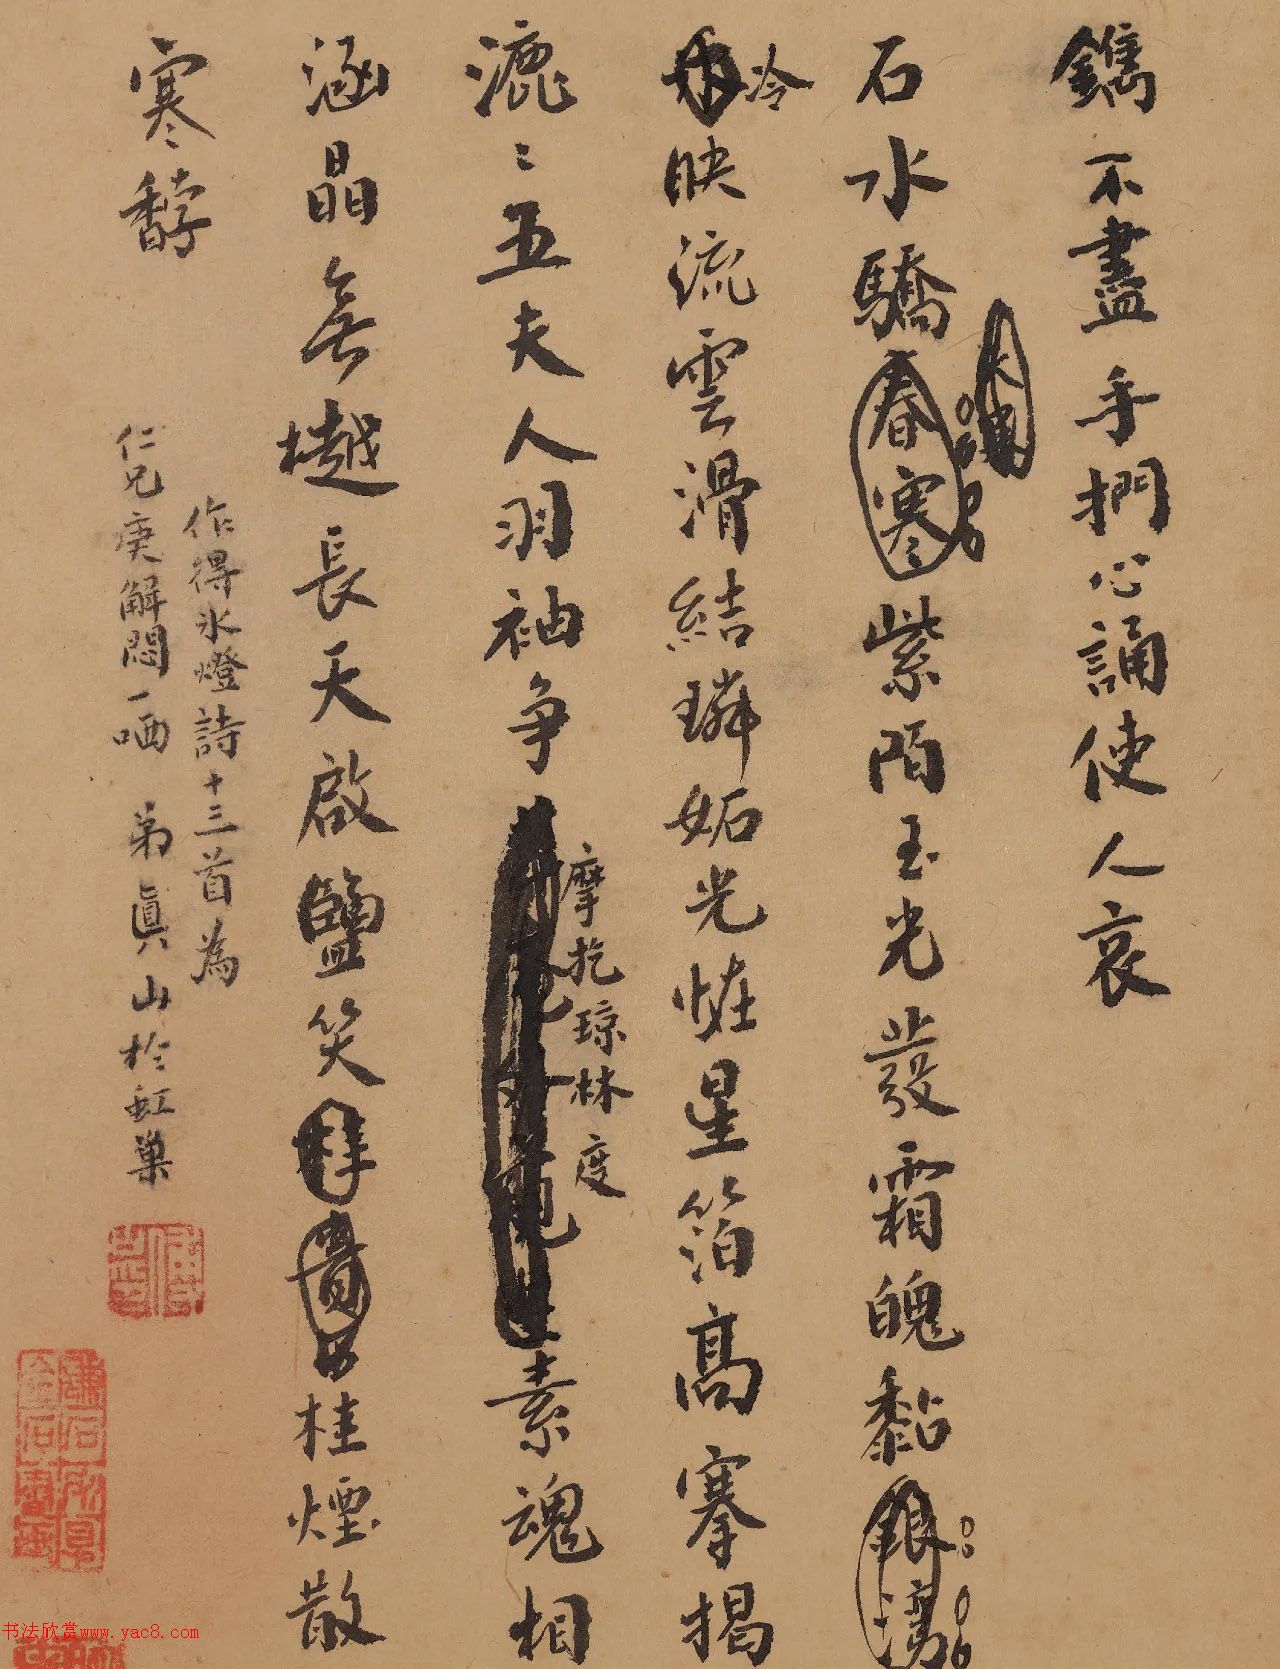 鐫不盡手捫心誦使人哀
石水驕春寒紫陌玉光發霜魄黏銀灣
冷映流雲滑結璘妬光怪星箔高搴揭
漉〻五夫人羽袖争摩挖琼林度素魂相
涵晶無樾長天啟鹽笑桂煙散
寒馞
作得氷燈詩十三首為
仁兄庚解悶一哂 弟真山於虹巢
书法欣赏www.yac8.com